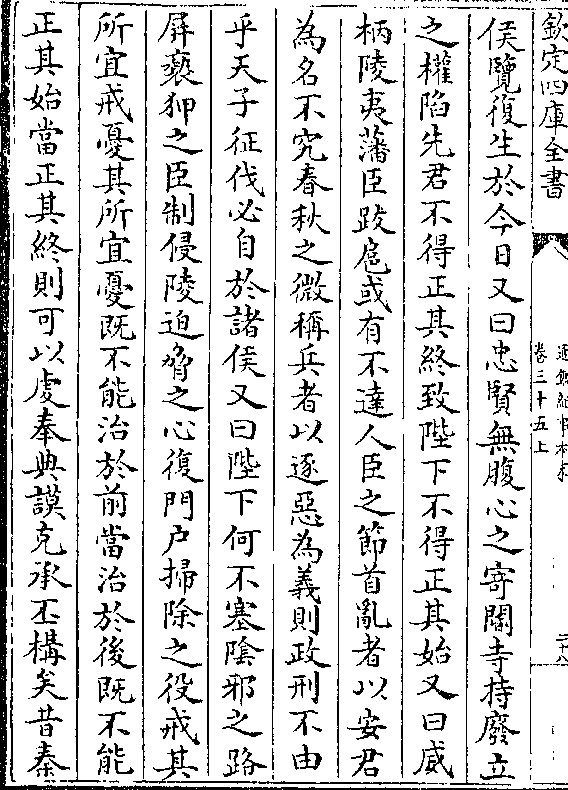 欽定四庫全書
通鑑紀事本末
卷三十五上
侯覽復生於今日又曰忠賢無腹心之寄閽寺持廢立
之權陷先君不得正其終致陛下不得正其始又曰威
柄陵夷藩臣跋扈或有不達人臣之節首亂者以安君
為名不究春秋之微稱兵者以逐惡為義則政刑不由
乎天子征伐必自於諸侯又曰陛下何不塞陰邪之路
屏褻狎之臣制侵陵迫脅之心復門户掃除之役戒其
所宜戒憂其所宜憂既不能治於前當治於後既不能
正其始當正其終則可以虔奉典謨克承丕構矣昔秦